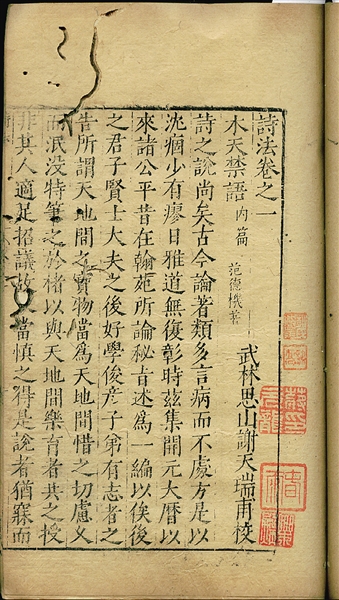 詩法卷之一
武林思山謝天瑞甫校
木天禁語內篇 范德機著
詩之說尚矣古今論著類多言病而不處方是以
沉痼少有瘳日雅道無復彰時茲集開元大曆以
來諸公平昔在翰苑所論秘旨述為一編以俟後
之君子賢士大夫之後好學俊彥子弟有志者之
告所謂天地間之寶物當為天地間惜之切慮久
而泯没特筆之於楮以與天地間樂育者共之授
非其人適足招議故又當慎之得是說者猶寐而